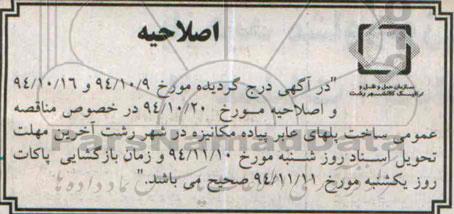 اصلاحیه
سازمان حمل و نقل و
ترافیک کلانشهر رشت
"در آگهی درج گردیده مورخ ۹۴/۱۰/۹ و ۹۴/۱۰/۱۶
و اصلاحیه مورخ ۹۴/۱۰/۲۰ در خصوص مناقصه
عمومی ساخت پلهای عابر پیاده مکانیزه در شهر رشت آخرین مهلت
تحویل اسناد روز شنبه مورخ ۹۴/۱۱/۱۰ و زمان بازگشایی پاکات
روز یکشنبه مورخ ۹۴/۱۱/۱۱ صحیح می باشد."
ParsNamadData